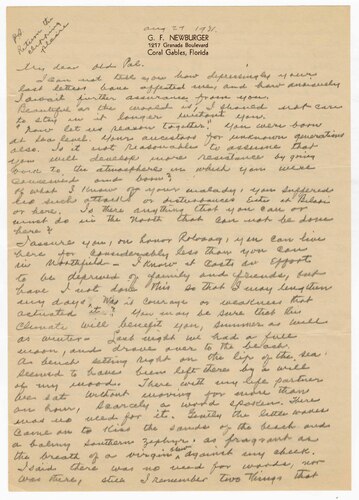 Aug 27 1931.
Return the clipping please
G. F. NEWBURGER
1217 Granada Boulevard
Coral Gables, Florida
My dear Old Pal.
I can not tell you how depressingly your
last letters have affected me and how anxiously
I await further assurance from you.
Beautiful as the world is, I should not care
to stay in it longer without you.
"Now let us reason together," You were born
at sea level. Your ancestors for unknown generations
also. Is it not reasonable to assume that
you will develop more resistance by going
back to the atmosphere in which you were
conceived and born?
Of what I know of your malady, you suffered
no such attacks or disturbances either at
or here. Is there anything that you can or
must do in the North that can not be done
here?
I assure you, on honor you can live
here for considerably less than you can
in I know it costs an effort
to be deprived of family and friends, but
have I not done this so that I may lengthen
my days? Was it courage or weakness that
activated it? You may be sure that the
climate will benefit you, summer as well
as winter. Last night we had a full
moon, and drove over to the beach.
A bench setting right on the lip of the sea
seemed to have been left there by a will
of my mood. There with my life partner
we sat without moving for more than
an hour, scarcely a word spoken. There
was no need for it. Gently the little waves
came on to kiss the sands of the beach and
a balmy southern zephyr, as fragrant as
the breath of a virgin blew against my cheek.
I said there was no need for words, nor
was there, still I remember two things that